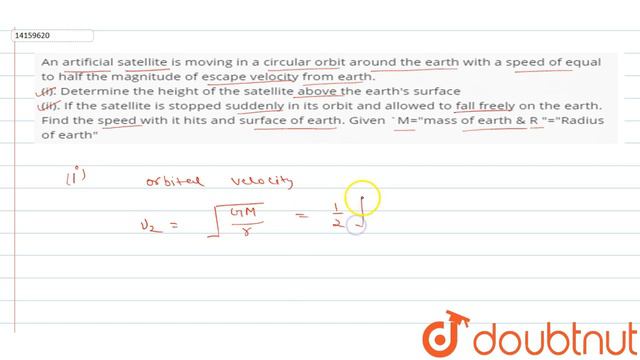 14159620
An artificial satellite is moving in a circular orbit around the earth with a speed of equal
to half the magnitude of escape velocity from earth.
(i). Determine the height of the satellite above the earth's surface
(ii). If the satellite is stopped suddenly in its orbit and allowed to fall freely on the earth.
Find the speed with it hits and surface of earth. Given `M="mass of earth & R "="Radius
of earth"
(i) orbital velocity
v₂ = √(GM/r) = 1/2 √
doubtnut